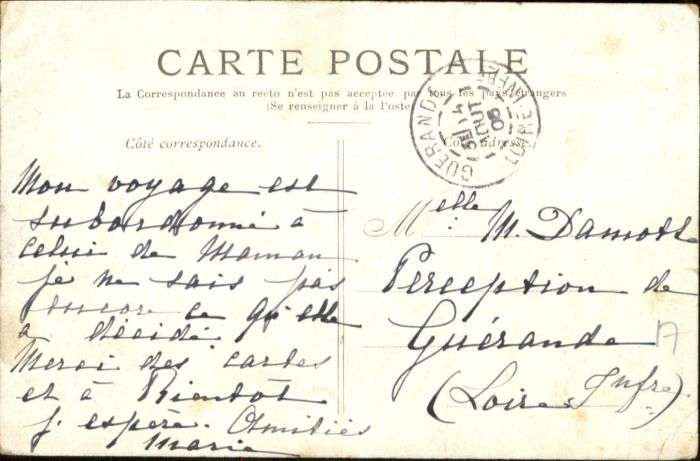 CARTE POSTALE
La Correspondance au recto n'est pas acceptée par tous les pays étrangers
(Se renseigner à la Poste)
Côté correspondance.
GUERANDE
14
AOUT
08
LOIRE-INFRE
Mon voyage est
subordonné à
celui de Maman
je ne sais pas
encore ce qu'elle
a décidé
Merci des cartes
et à Bientôt
j. espère. Amitiés
Marie
Melle M. Damott
Perception de
Guérande
(Loire Infre)